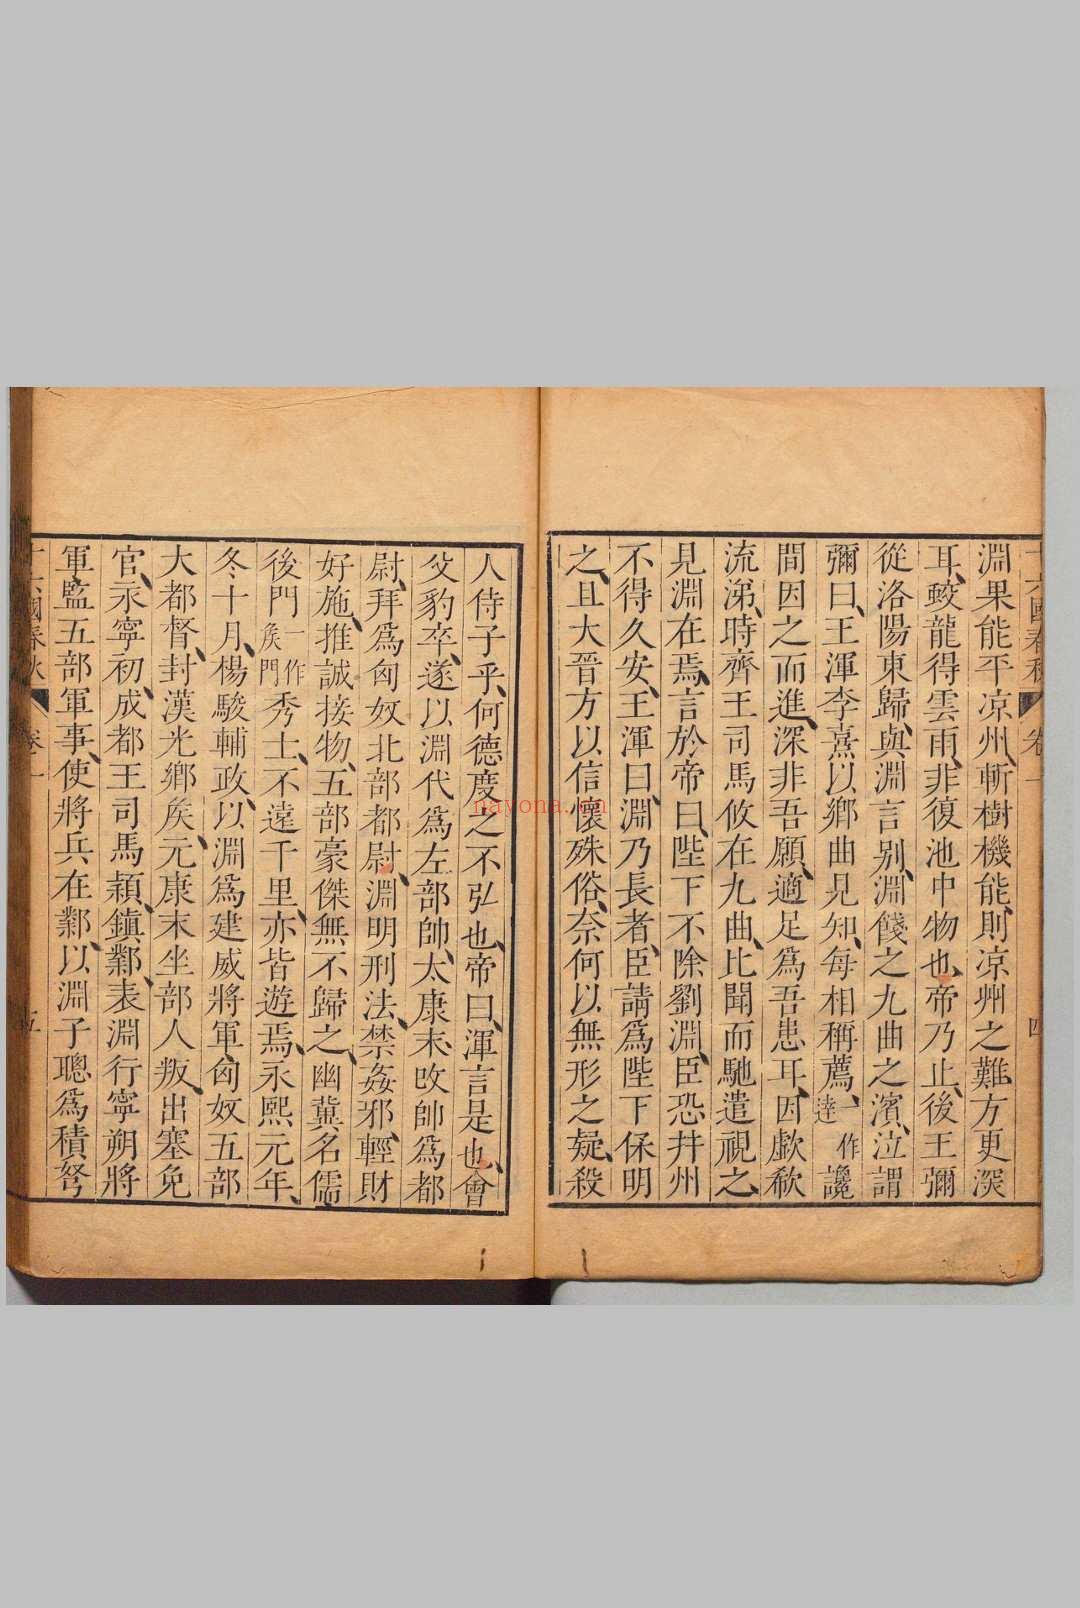 十六國春秋 卷一 四
淵果能平凉州、斬樹機能、則凉州之難、方更深
耳、蛟龍得雲雨、非復池中物也、帝乃止、後王彌
從洛陽東歸、與淵言别、淵餞之九曲之濱、泣謂
彌曰、王渾李熹以鄉曲見知、每相稱薦、一作達讒
間因之而進、深非吾願、適足爲吾患耳、因歔欷
流涕、時齊王司馬攸在九曲、比聞而馳遣視之、
見淵在焉、言於帝曰、陛下不除劉淵、臣恐幷州
不得久安、王渾曰、淵乃長者、臣請爲陛下保明
之、且大晉方以信懷殊俗、奈何以無形之疑、殺
人侍子乎、何德度之不弘也、帝曰、渾言是也、會
父豹卒、遂以淵代爲左部帥、太康末、改帥爲都
尉、拜爲匈奴北部都尉、淵明刑法、禁姦邪、輕財
好施、推誠接物、五部豪傑無不歸之、幽冀名儒、
後門一作矦門秀士、不遠千里、亦皆遊焉、永熙元年、
冬十月、楊駿輔政、以淵爲建威將軍、匈奴五部
大都督、封漢光鄉矦、元康末坐部人叛、出塞免
官、永寧初、成都王司馬穎、鎮鄴、表淵行寧朔將
軍、監五部軍事、使將兵在鄴、以淵子聰爲積弩
十六國春秋 卷一 五
nayona.cn